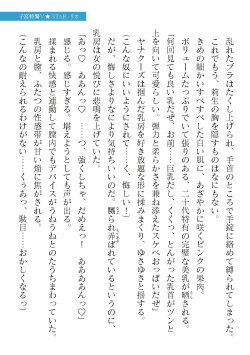 乱れたブラはたくし上げられ、手首のところで手錠に絡めて縛られてしまった。
これでもう、莉生の胸を隠すものはなにもない。
きめの細かいすべすべした白い肌に、あざやかに咲くピンクの果肉。
ボリュームたっぷりでいて張りのある、二十代特有の完璧な美乳が晒される。
「何回見ても良い乳だぜ、お前……巨乳だし、くくっ、とんがった乳首がツンと
上を向いて可愛らしい。弾力と柔らかさを兼ね添えたスケベおっぱいだぜ」
ヤナクーズは掴んだ乳房を好き放題な形に揉みまくり、ゆさゆさと揺する。
（こんな奴にいいように……くっ……悔しい！）
だが、悔しさよりもつらいのが、嬲られ弄ばれているというのに、
乳房は女の悦びに悲鳴を上げていた。
「あっ♡　あああっ♡　……っ、強くしちゃ、だめえっ！　ああああんっ♡」
感じる。感じすぎる。堪えようとしても声が出る。
揉まれる快感と連動して膣内でもデバイスがうねうねとのたうちまわっていた。
乳房と膣、ふたつの性感帯が甘い焔に焦がされる。
（こんなの耐えられない……くぅあっ、駄目……おかしくなるっ）